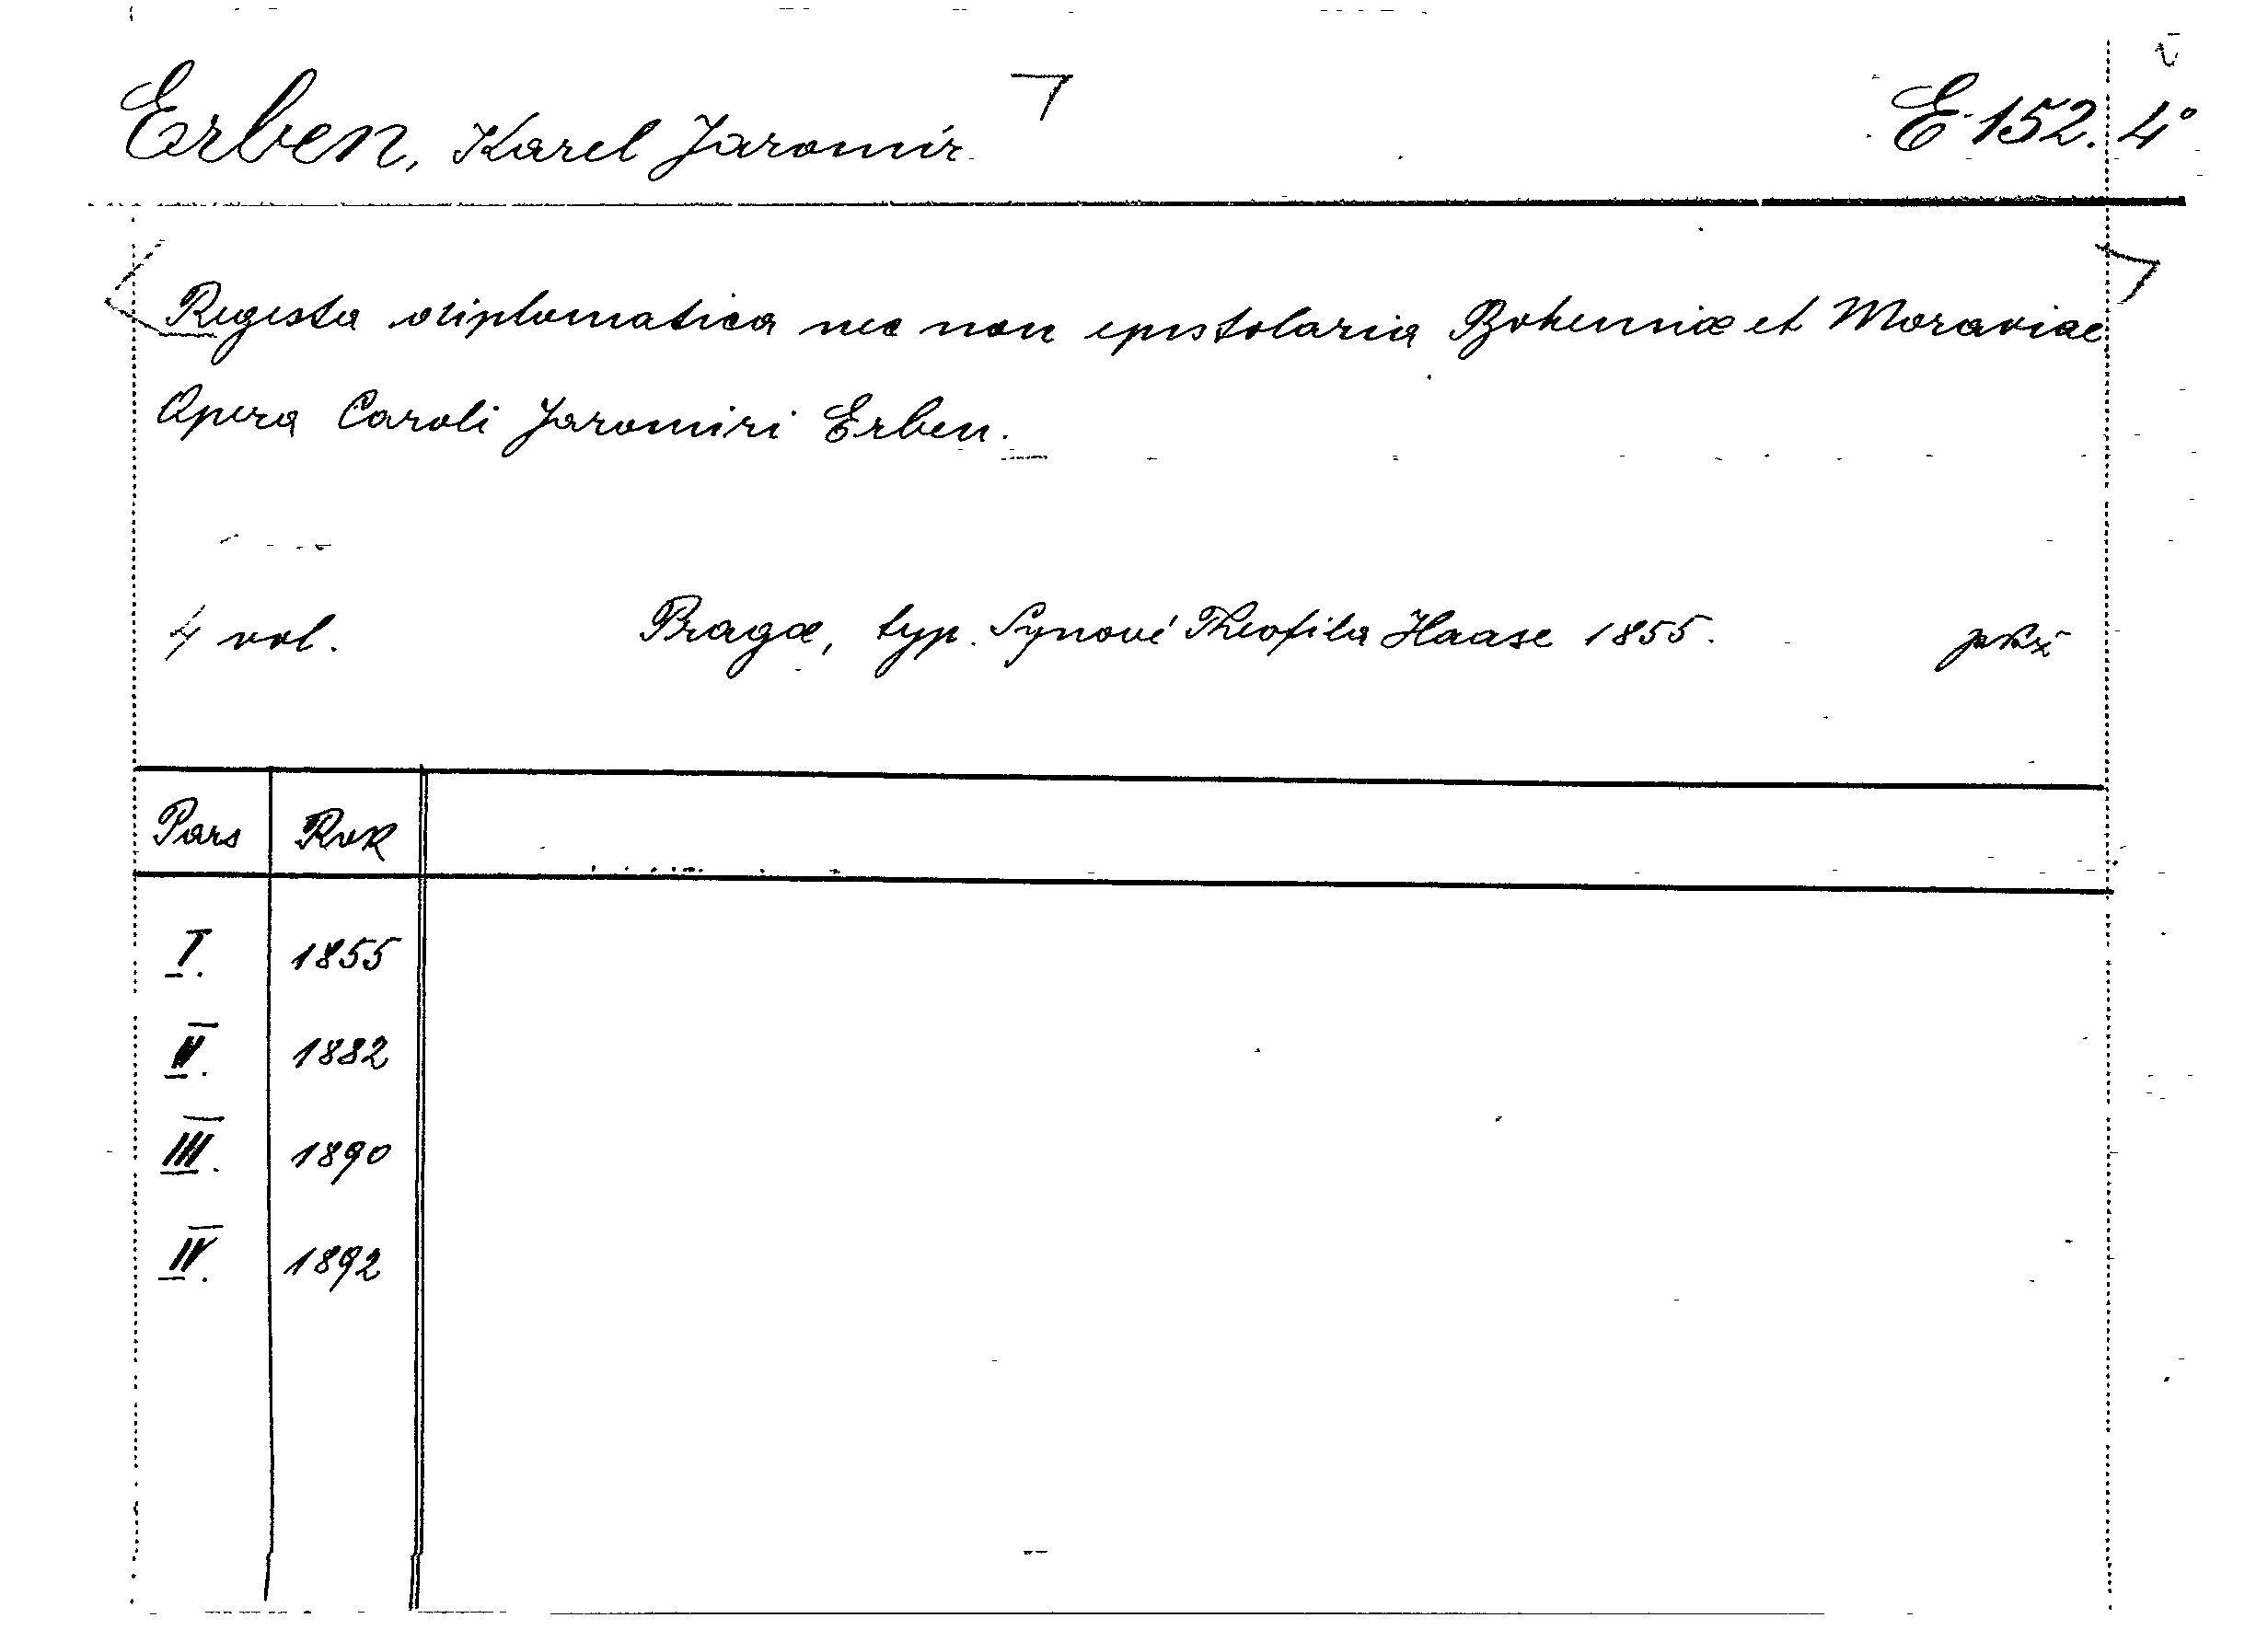 Erben, Karel Jaromír E 152. 4°
Regesta diplomatica nec non epistolaria Bohemiæ et Moraviae
Opera Caroli Jaromiri Erben.
4 vol. Pragæ, typ. Synové Theofila Haase 1855.
Pars Rok
I. 1855
II. 1882
III. 1890
IV. 1892